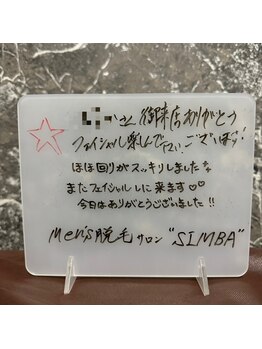 さん 御来店ありがとう
フェイシャル楽しんで下さいございます!
ほほ回りがスッキリしました
またフェイシャルしに来ます♡♡
今日はありがとうございました!!
Men's脱毛サロン "SIMBA"